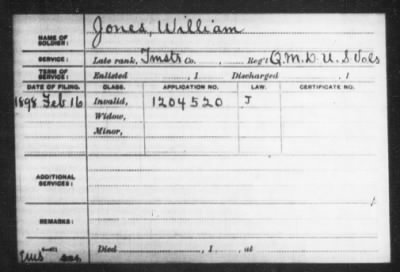 NAME OF SOLDIER: Jones, William
SERVICE: Late rank, Tmstr Co. Reg't Q.M.D. U.S. Vols
TERM OF SERVICE: Enlisted , 1 Discharged , 1
DATE OF FILING. CLASS. APPLICATION NO. LAW. CERTIFICATE NO.
1898 Feb 16 Invalid, 1204520 J
Widow,
Minor,
ADDITIONAL SERVICES:
REMARKS:
Died , 1 , at